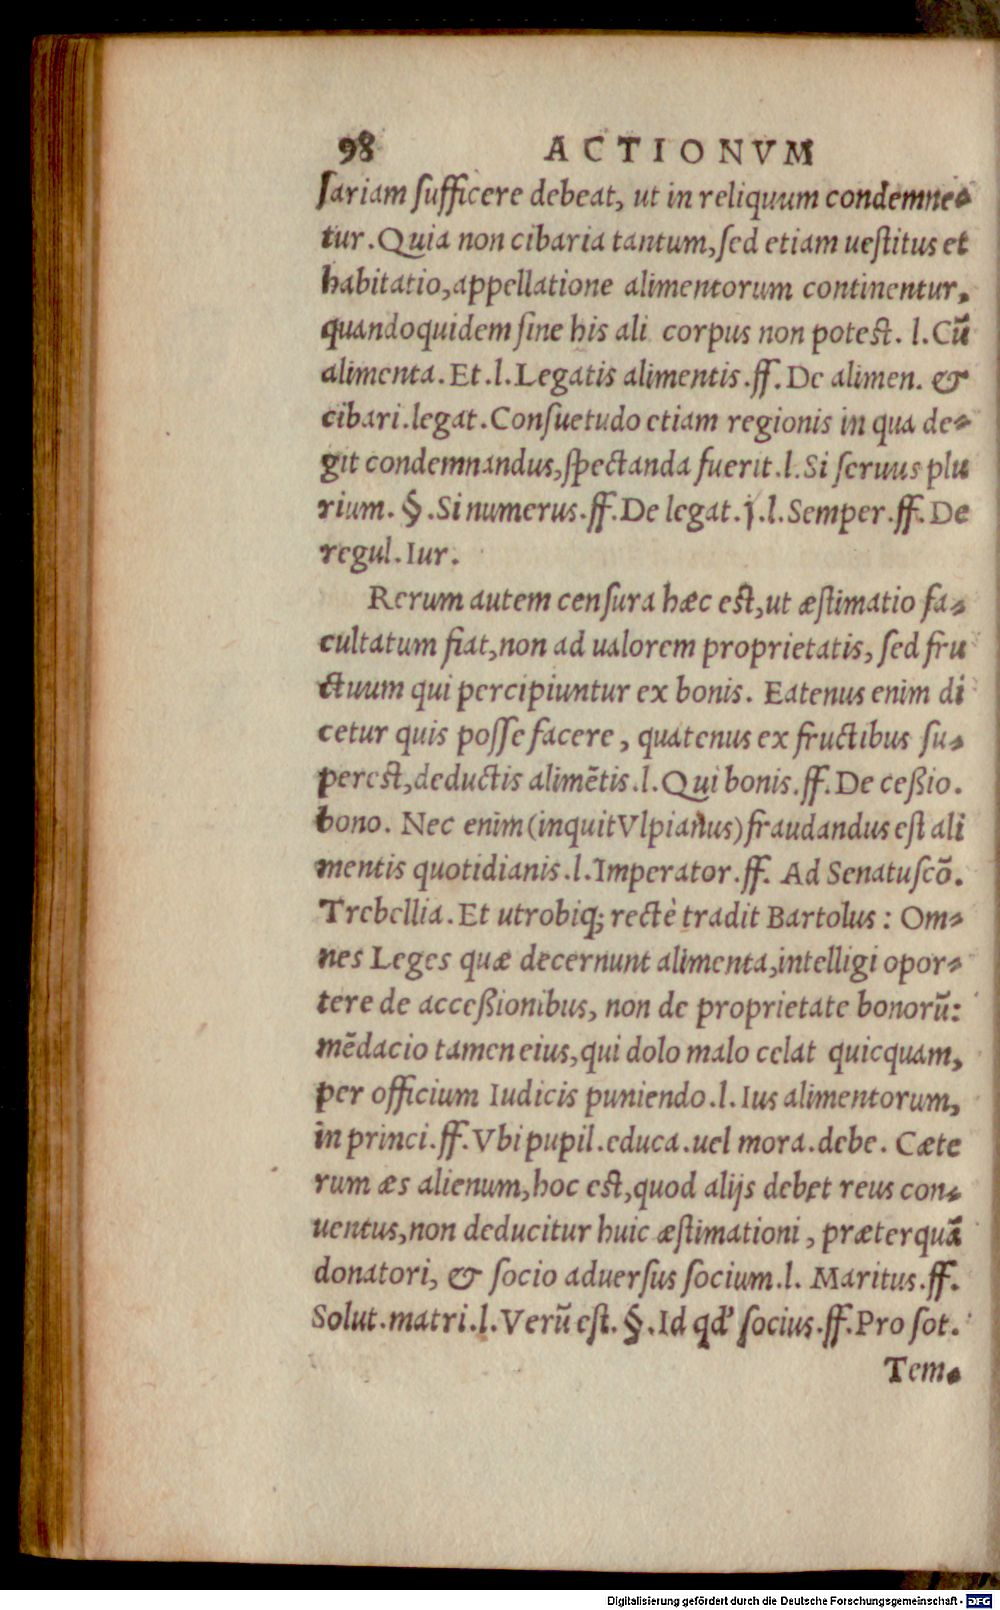 98 ACTIONVM
ſariam ſufficere debeat, ut in reliquum condemne-
tur. Quia non cibaria tantum, ſed etiam ueſtitus et
habitatio, appellatione alimentorum continentur,
quandoquidem ſine his ali corpus non poteſt. l. Cū
alimenta. Et. l. Legatis alimentis. ff. De alimen. &
cibari. legat. Conſuetudo etiam regionis in qua de-
git condemnandus, ſpectanda fuerit. l. Si ſeruus plu
rium. §. Si numerus. ff. De legat. j. l. Semper. ff. De
regul. Iur.
Rerum autem cenſura hæc eſt, ut æſtimatio fa-
cultatum fiat, non ad ualorem proprietatis, ſed fru
ctuum qui percipiuntur ex bonis. Eatenus enim di
cetur quis poſſe facere, quatenus ex fructibus ſu-
pereſt, deductis alimētis. l. Qui bonis. ff. De ceßio.
bono. Nec enim (inquit Vlpianus) fraudandus eſt ali
mentis quotidianis. l. Imperator. ff. Ad Senatuſcō.
Trebellia. Et utrobiq; rectè tradit Bartolus: Om-
nes Leges quæ decernunt alimenta, intelligi opor-
tere de acceßionibus, non de proprietate bonorū:
mēdacio tamen eius, qui dolo malo celat quicquam,
per officium Iudicis puniendo. l. Ius alimentorum,
in princi. ff. Vbi pupil. educa. uel mora. debe. Cæte
rum æs alienum, hoc eſt, quod alijs debet reus con-
uentus, non deducitur huic æſtimationi, præterquā
donatori, & ſocio aduerſus ſocium. l. Maritus. ff.
Solut. matri. l. Verū eſt. §. Id qď ſocius. ff. Pro ſot.
Tem-
Digitalisierung gefördert durch die Deutsche Forschungsgemeinschaft - DFG